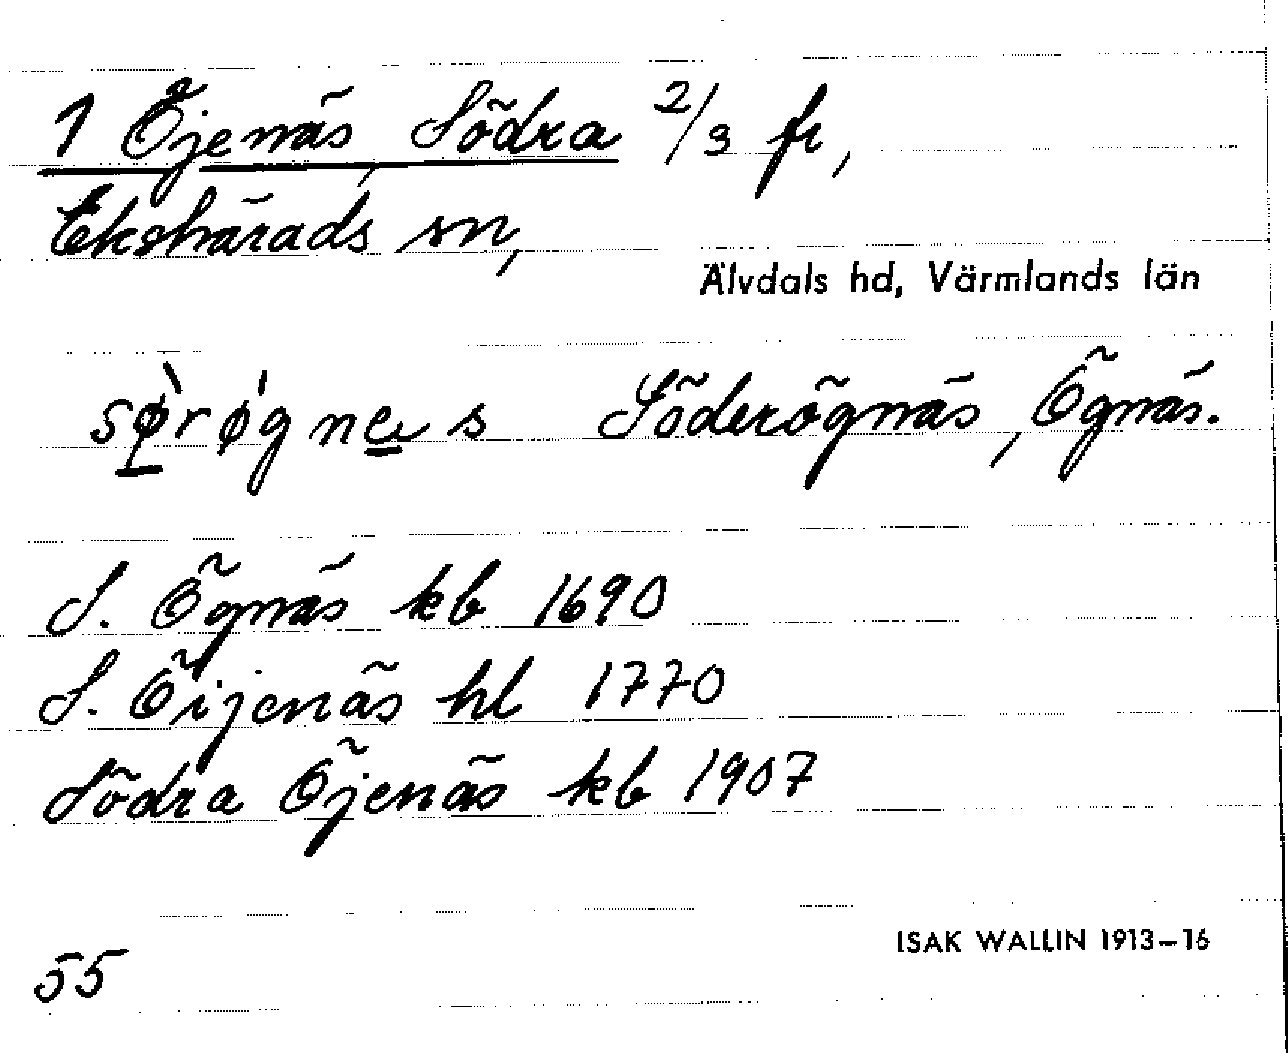 1 Öjenäs, Södra 2/3 fr,
Ekshärads sn,
Älvdals hd, Värmlands län
sø̠̀røgnes Söderögnäs, Ögnäs.
S. Ögnäs kb 1690
S. Öijenäs hl 1770
Södra Öjenäs kb 1907
ISAK WALLIN 1913–16
55